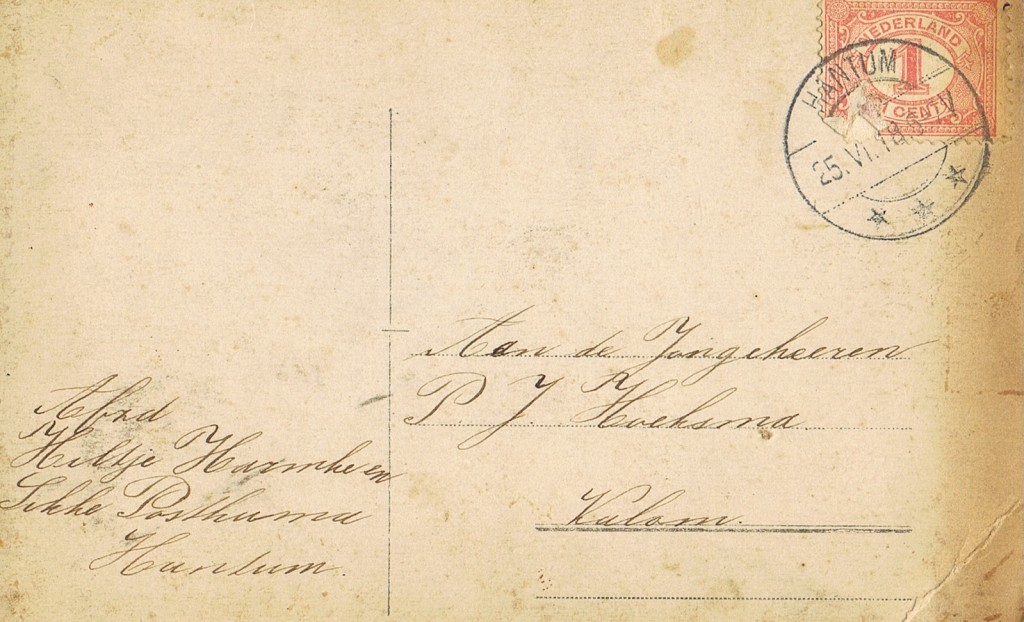 NEDERLAND
1
CENT
HANTUM
25.VI.18.
Aan de Jongeheeren
P. J. Hoeksma
Kulom.
Afzd
Hiltje Harmke en
Sikke Posthuma
Hantum.